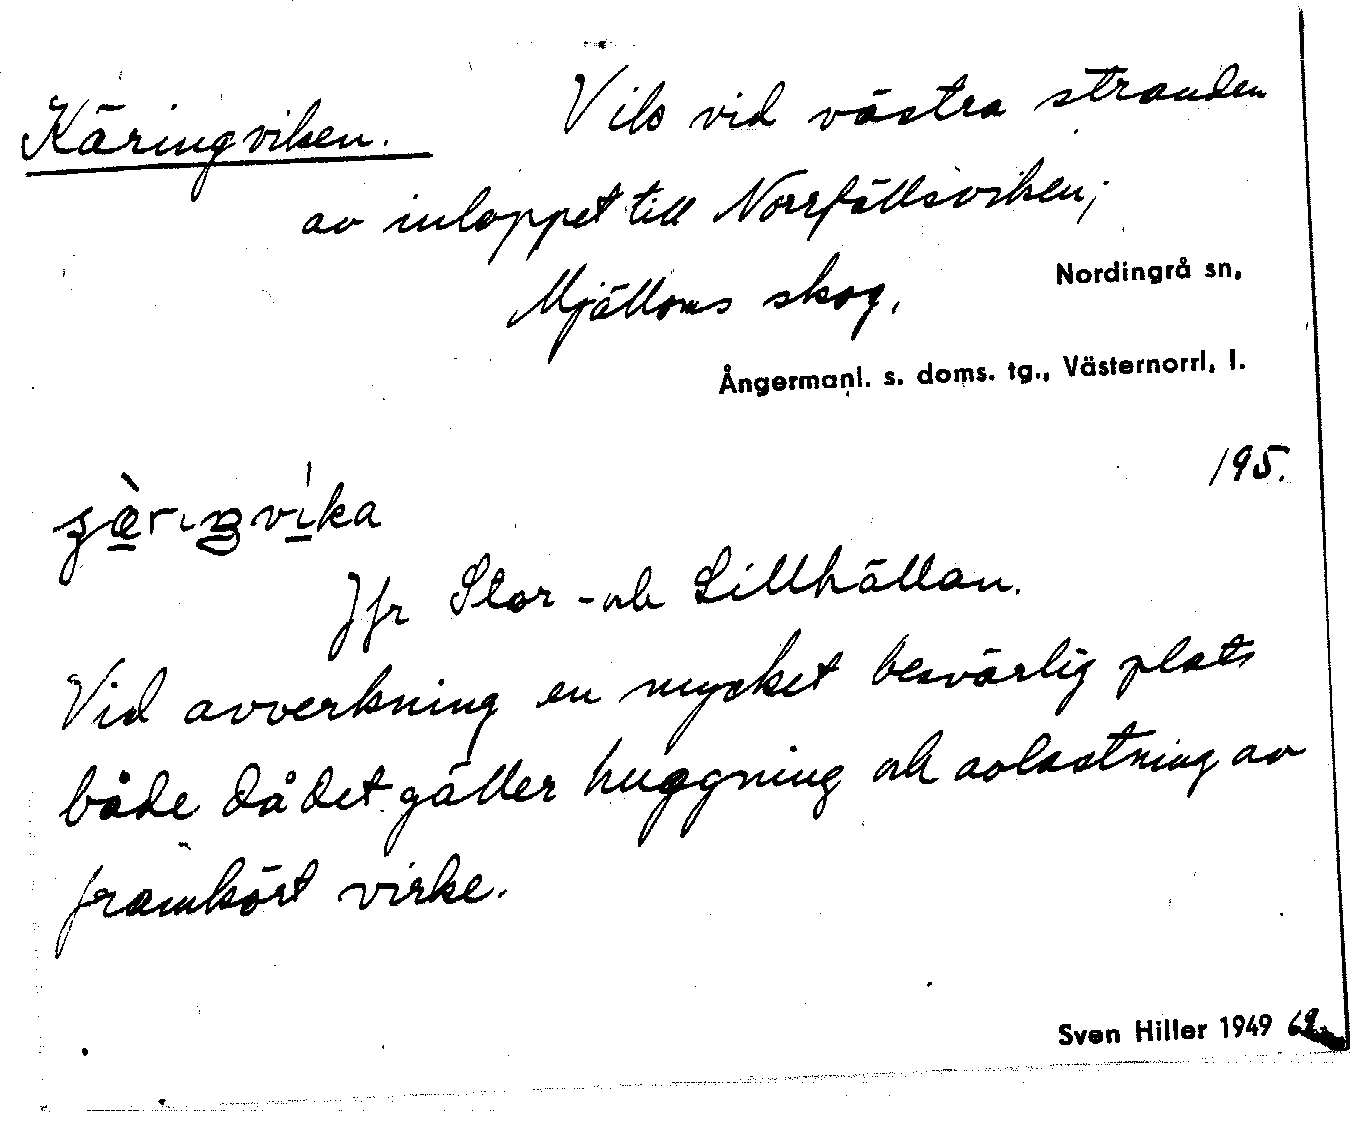 Käringviken. Vik vid västra stranden
av inloppet till Norrfällsviken;
Mjälloms skog.
Nordingrå sn,
Ångermanl. s. doms. tg., Västernorrl. l.
195.
Jfr Stor- och Lillhällan.
Vid avverkning en mycket besvärlig plats
både då det gäller huggning och avlastning av
framkört virke.
Sven Hiller 1949